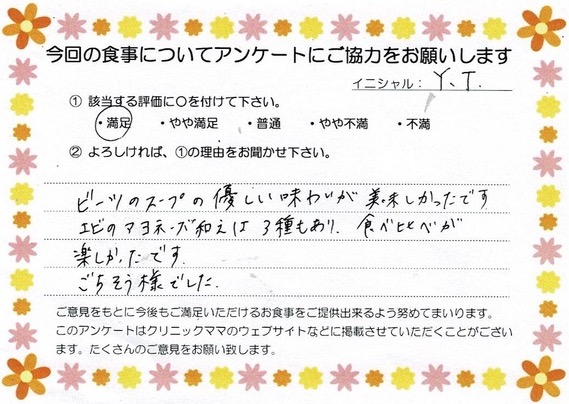 今回の食事についてアンケートにご協力をお願いします
イニシャル： Y.T.
① 該当する評価に○を付けて下さい。
・満足 ・やや満足 ・普通 ・やや不満 ・不満
② よろしければ、①の理由をお聞かせ下さい。
ビーツのスープの優しい味わいが美味しかったです
エビのマヨネーズ和えは3種もあり、食べ比べが
楽しかったです。
ごちそう様でした。
ご意見をもとに今後もご満足いただけるお食事をご提供出来るよう努めてまいります。
このアンケートはクリニックママのウェブサイトなどに掲載させていただくことがござい
ます。たくさんのご意見をお願い致します。